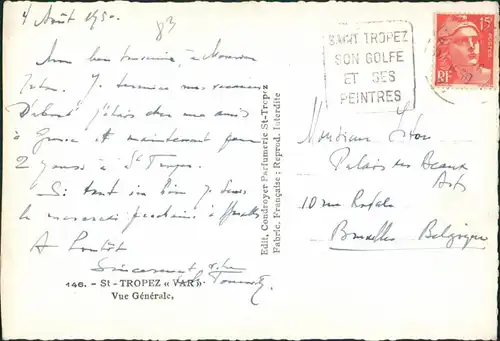 4 Août 1950.
83
Mon bon souvenir, à Monsieur
Je termine mes vacances
D'abord j'étais chez une amie
à et maintenant pour
2 jours à St Tropez.
Si tout va bien je serai
le mercredi prochain à Bruxelles
A bientôt
Sincèrement votre
146. - St - TROPEZ « VAR »
Vue Générale.
Edit. Condroyer Parfumerie St-Tropez
Fabric. Française : Reprod. Interdite
SAINT TROPEZ
SON GOLFE
ET SES
PEINTRES
RF
POSTES
Monsieur
Palais des Beaux
Arts
10 rue Royale
Bruxelles Belgique